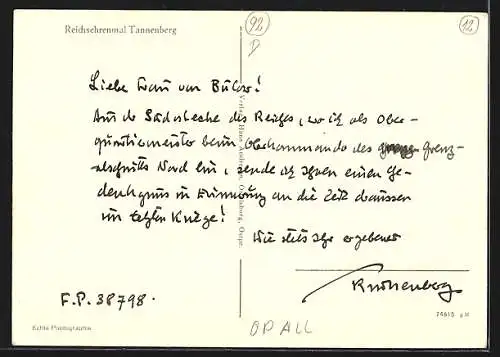 Reichsehrenmal Tannenberg
92
D
12
Liebe Frau von Bülow!
Aus der Südostecke des Reiches, wo ich als Ober-
quartiermeister beim Oberkommando des Grenz-
abschnitts Nord bin, sende ich Ihnen einen Ge-
denkgruss in Erinnerung an die Zeit draussen
im letzten Kriege!
Wie stets Ihr ergebener
F.P. 38798.
Echte Photographie
74615
OP ALL